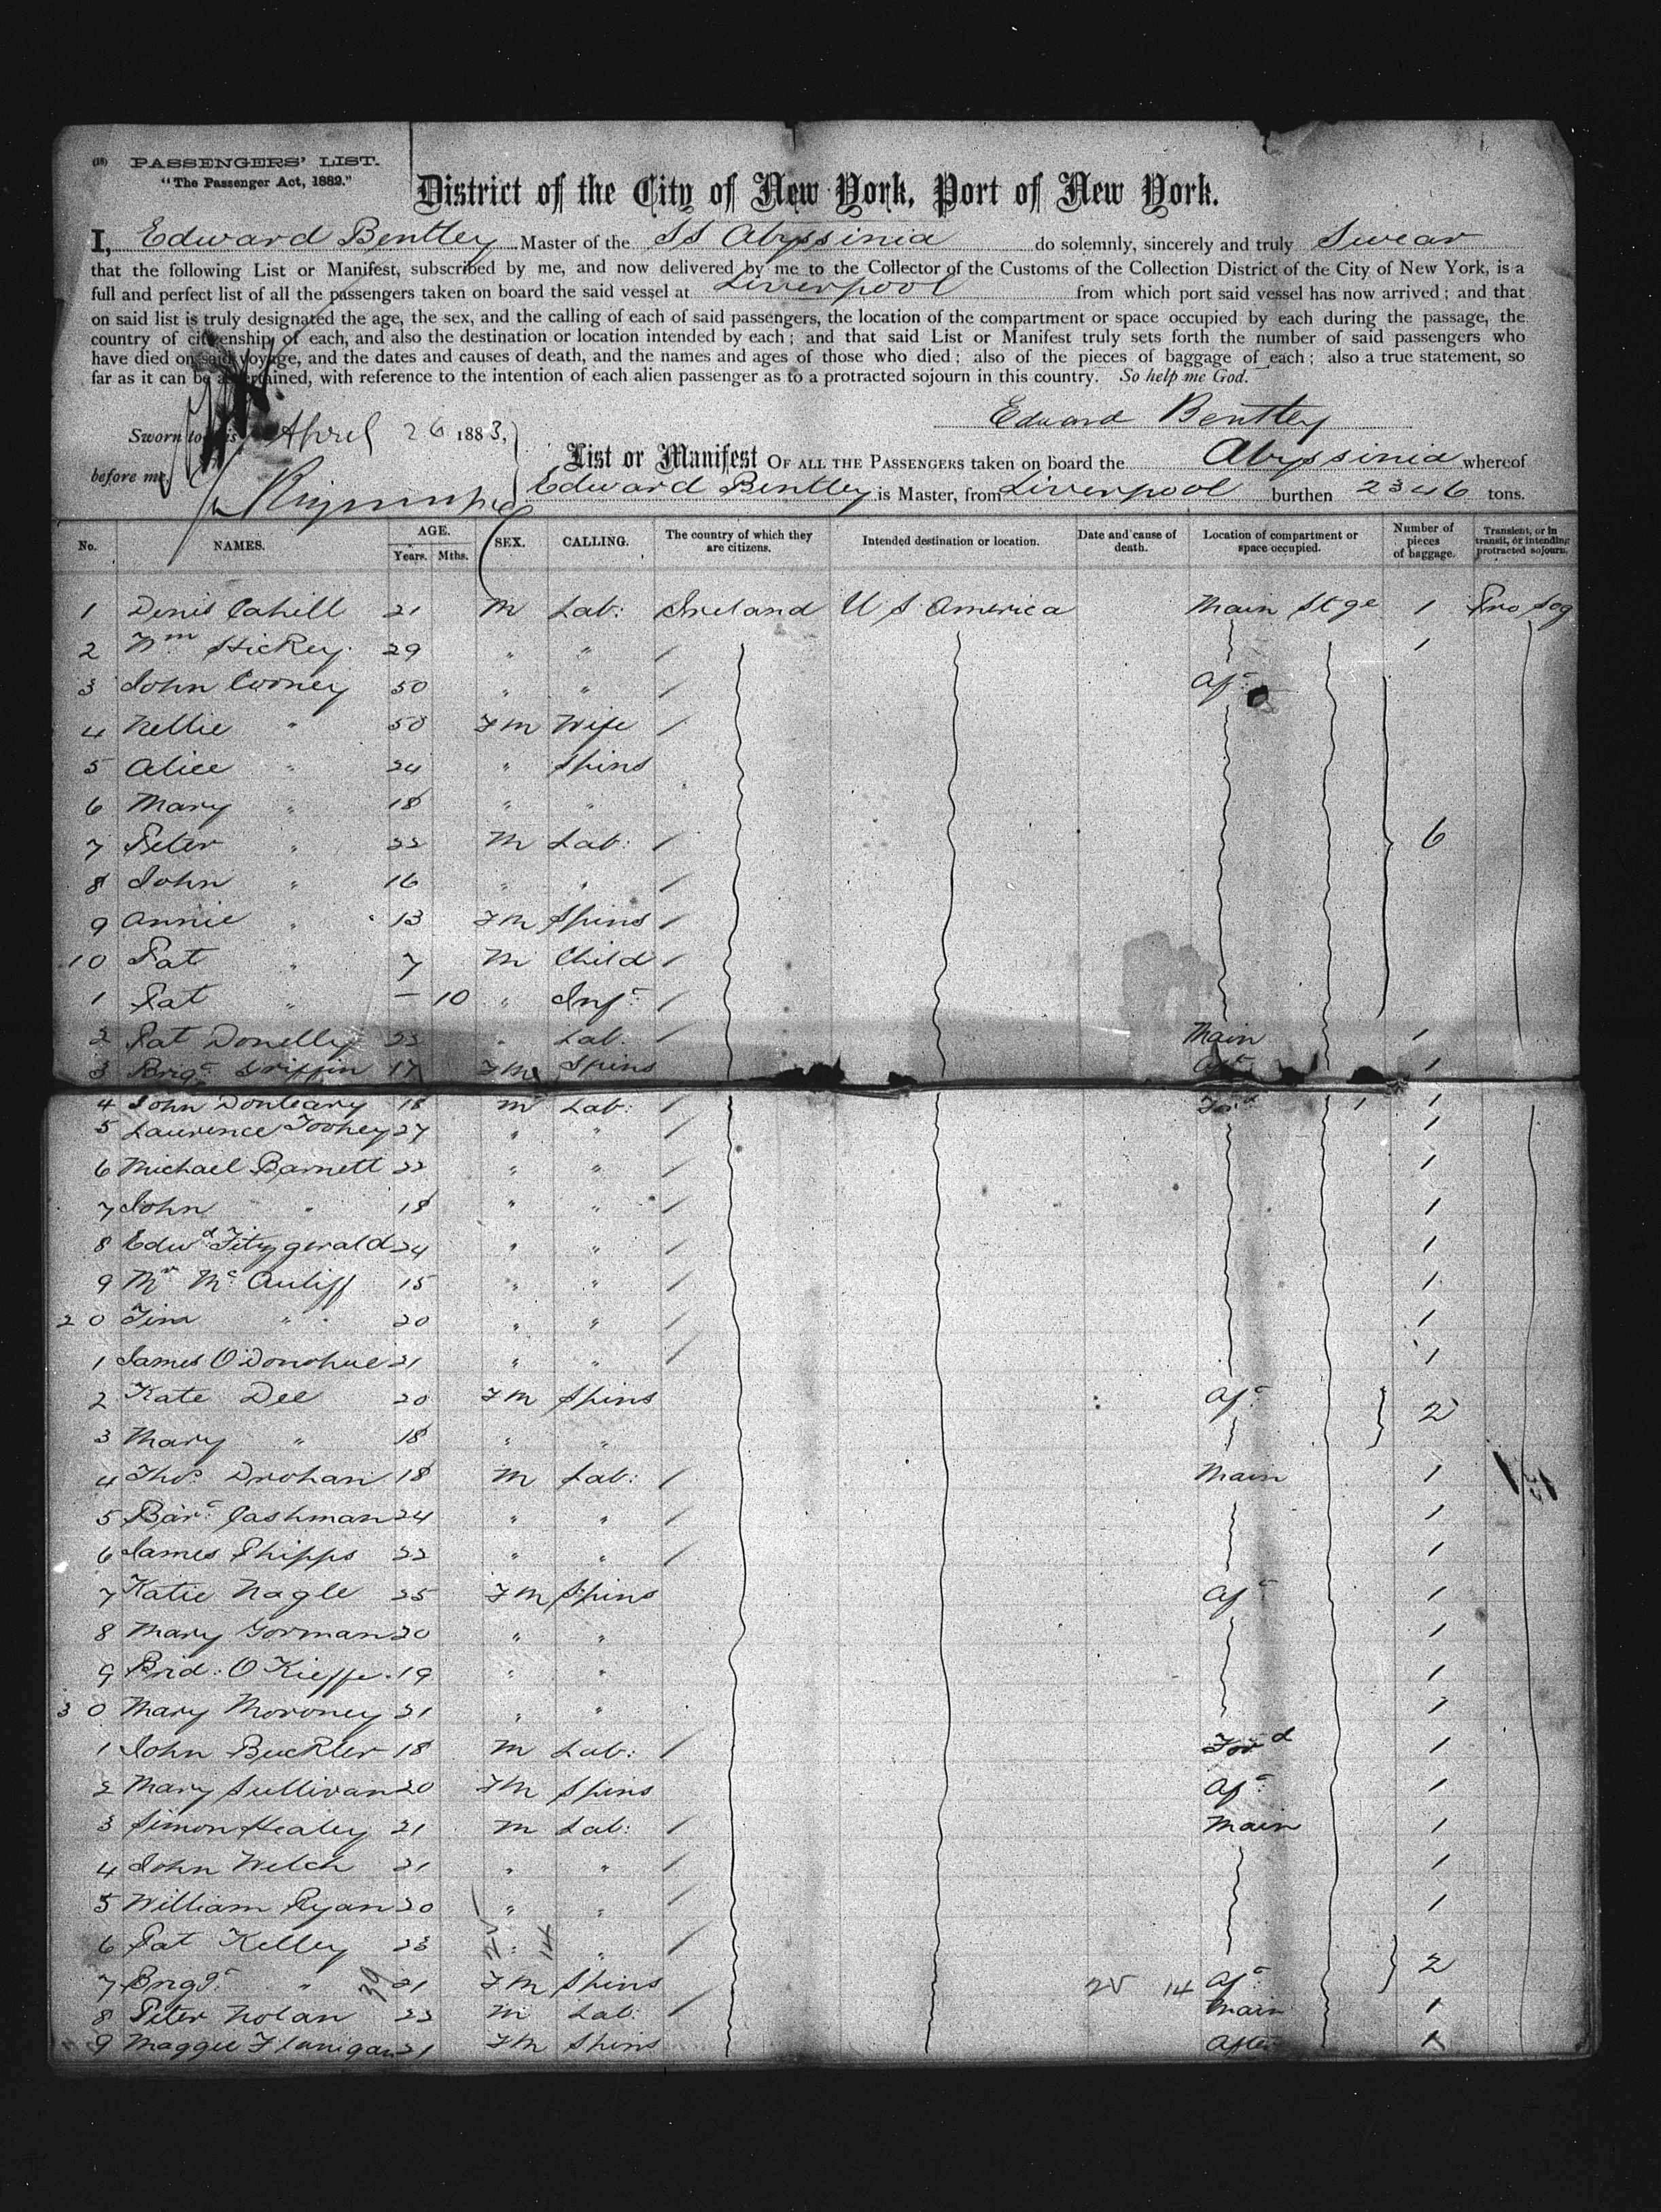 (18) PASSENGERS' LIST.
"The Passenger Act, 1882."
District of the City of New York, Port of New York.
I, Edward Bentley Master of the SS Abyssinia do solemnly, sincerely and truly Swear
that the following List or Manifest, subscribed by me, and now delivered by me to the Collector of the Customs of the Collection District of the City of New York, is a
full and perfect list of all the passengers taken on board the said vessel at Liverpool from which port said vessel has now arrived; and that
on said list is truly designated the age, the sex, and the calling of each of said passengers, the location of the compartment or space occupied by each during the passage, the
country of citizenship of each, and also the destination or location intended by each; and that said List or Manifest truly sets forth the number of said passengers who
have died on said voyage, and the dates and causes of death, and the names and ages of those who died; also of the pieces of baggage of each; also a true statement, so
far as it can be ascertained, with reference to the intention of each alien passenger as to a protracted sojourn in this country. So help me God.
Edward Bentley
Sworn to this April 26 1883,
before me,
List or Manifest OF ALL THE PASSENGERS taken on board the Abyssinia whereof
Edward Bentley is Master, from Liverpool burthen 2346 tons.
No. NAMES. AGE. Years. Mths. SEX. CALLING. The country of which they are citizens. Intended destination or location. Date and cause of death. Location of compartment or space occupied. Number of pieces of baggage. Transient, or in transit, or intending protracted sojourn.
1 Denis Cahill 21 M Lab: Ireland U S America Main Stge 1 Pro Sog
2 Wm Hickey 29 " " / 1
3 John Cooney 50 " " / Aft
4 Nellie " 50 Fm Wife /
5 Alice " 24 " Spins
6 Mary " 18 " "
7 Peter " 22 M Lab: / 6
8 John " 16 " " /
9 Annie " 13 Fm Spins /
10 Pat " 7 M Child /
1 Pat " — 10 " Inft /
2 Pat Donelly 22 " Lab. / Main 1
3 Brigt Griffin 17 Fm Spins Aft 1
4 John Donleary 18 M Lab: / Ford 1
5 Laurence Toohey 27 " " / 1
6 Michael Barnett 22 " " / 1
7 John " 18 " " / 1
8 Edwd Fitzgerald 24 " " / 1
9 Mc Auliff 15 " " / 1
20 Tim " 20 " " / 1
1 James O'Donohue 21 " " / 1
2 Kate Dee 20 Fm Spins Aft 2
3 Mary " 18 " "
4 Thos Drohan 18 M Lab: / Main 1
5 Bart Cashman 24 " " / 1
6 James Phipps 22 " " / 1
7 Katie Nagle 25 Fm Spins Aft 1
8 Mary Gorman 20 " " 1
9 Brid: O Kieffe 19 " " 1
30 Mary Moroney 21 " " 1
1 John Buckler 18 M Lab: / Ford 1
2 Mary Sullivan 20 Fm Spins Aft 1
3 Simon Healey 21 M Lab: / Main 1
4 John Welch 21 " " / 1
5 William Ryan 20 " " / 1
6 Pat Kelley 23 " " / 2
7 Brigt " 21 Fm Spins 25 14 Aft
8 Peter Nolan 22 M Lab. / Main 1
9 Maggie Flanigan 21 Fm Spins After 1